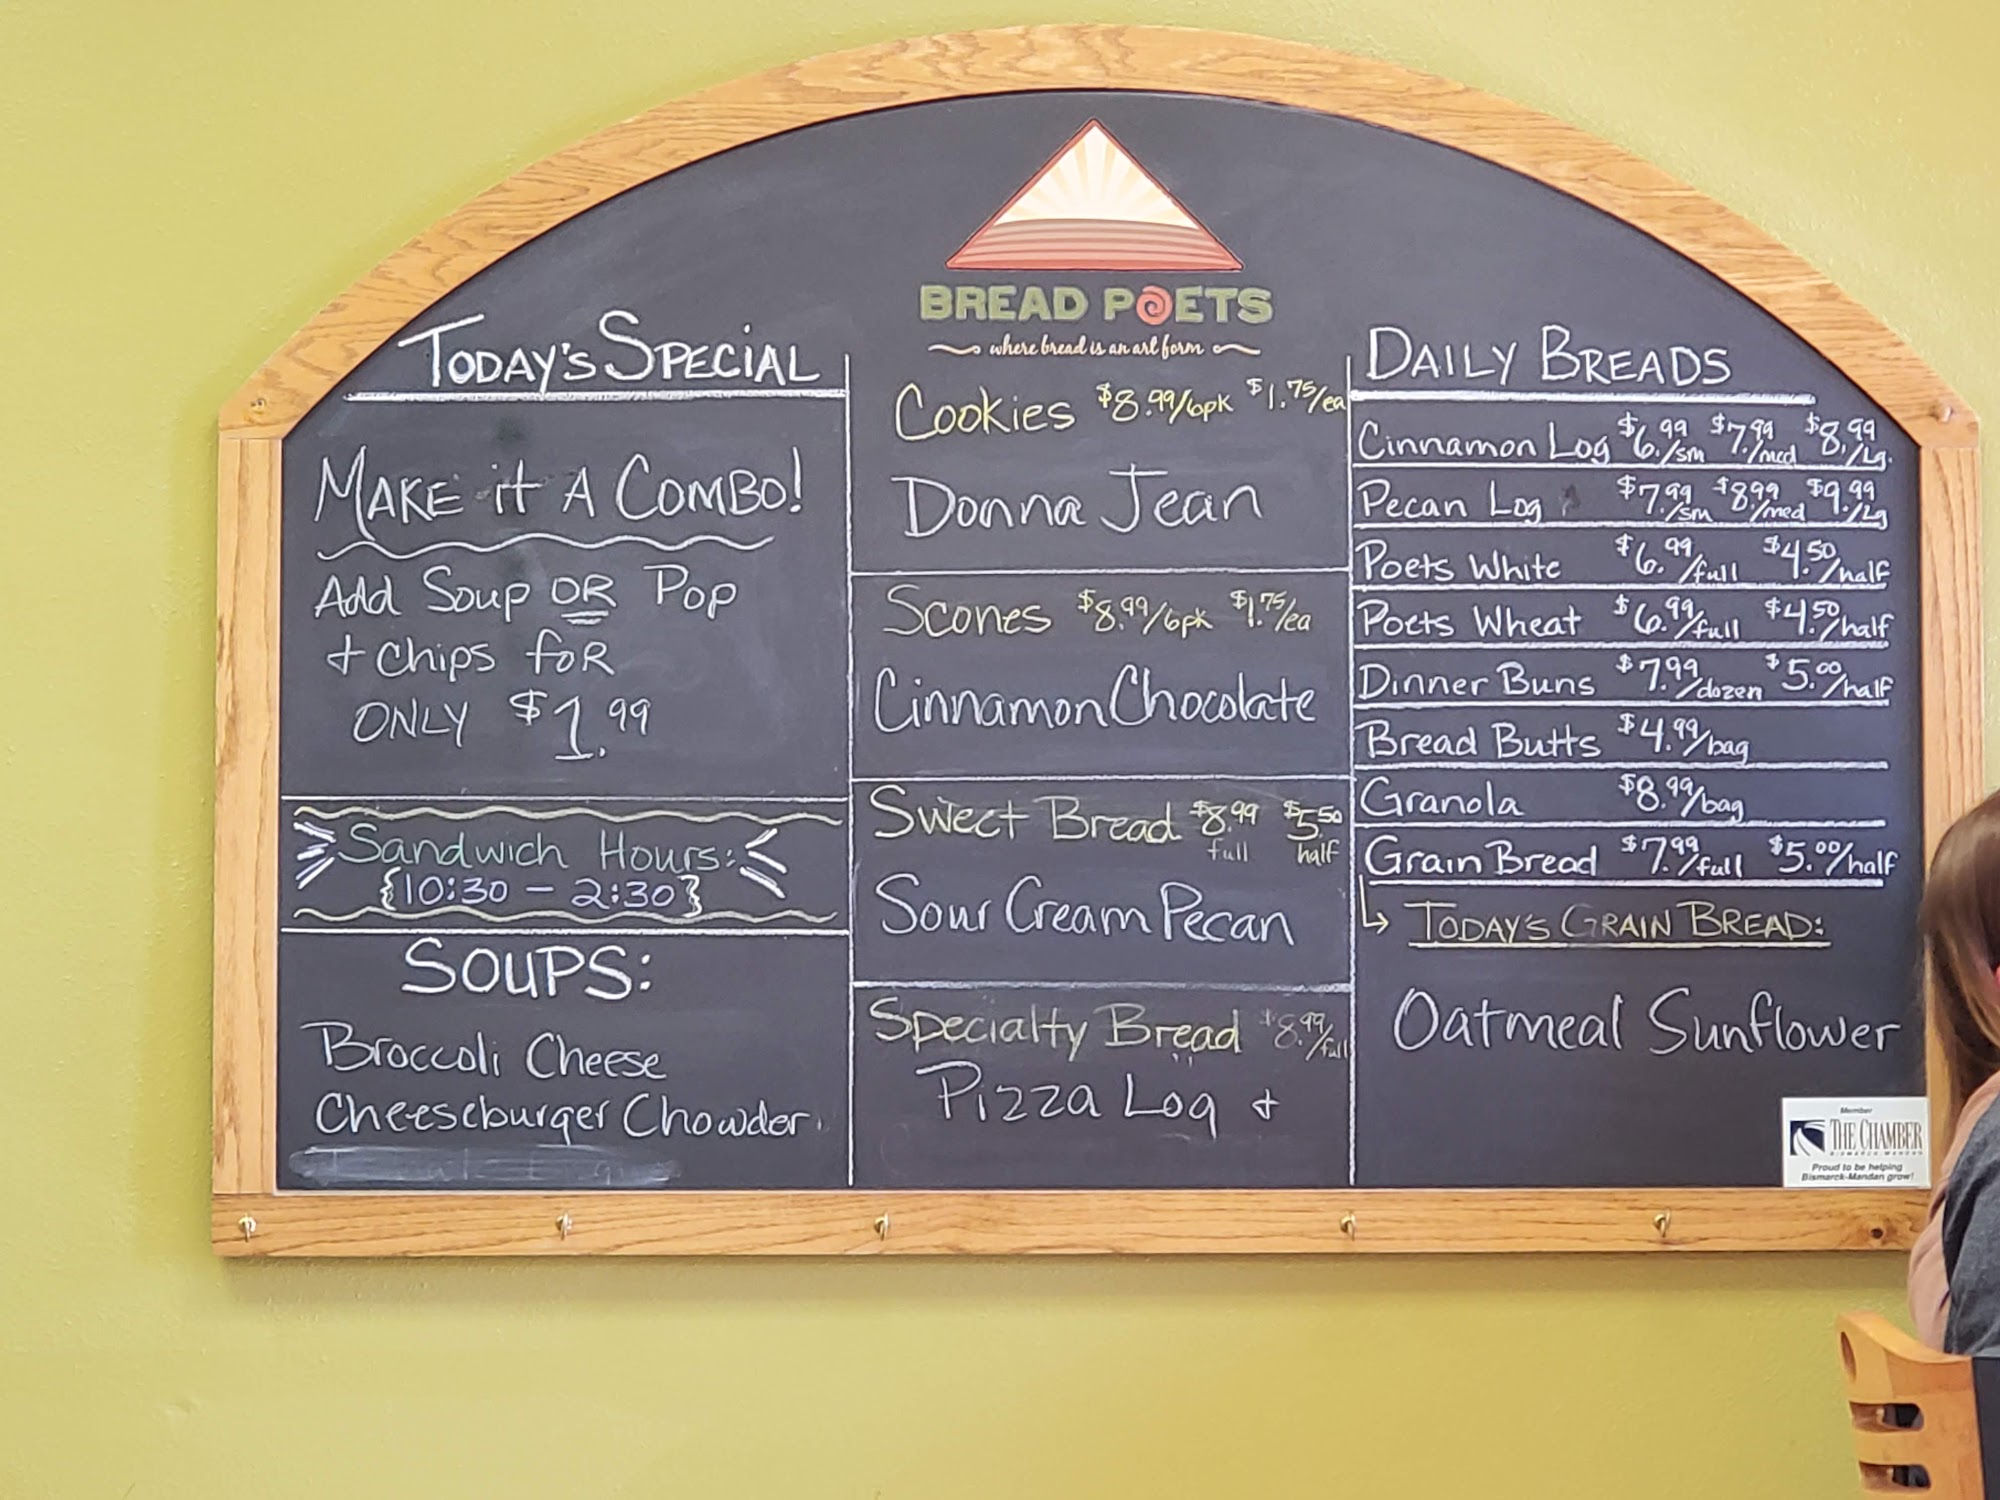 BREAD POETS
where bread is an art form
TODAY'S SPECIAL
MAKE it A COMBO!
Add Soup OR Pop
+ Chips foR
ONLY $1.99
Sandwich Hours:
{10:30 - 2:30}
SOUPS:
Broccoli Cheese
Cheeseburger Chowder
Cookies $8.99/6pk $1.75/ea
Donna Jean
Scones $8.99/6pk $1.75/ea
Cinnamon Chocolate
Sweet Bread $8.99 full $5.50 half
Sour Cream Pecan
Specialty Bread $8.99/full
Pizza Log +
DAILY BREADS
Cinnamon Log $6.99/sm $7.99/med $8.99/Lg.
Pecan Log $7.99/sm $8.99/med $9.99/Lg
Poets White $6.99/full $4.50/half
Poets Wheat $6.99/full $4.50/half
Dinner Buns $7.99/dozen $5.00/half
Bread Butts $4.99/bag
Granola $8.99/bag
Grain Bread $7.99/full $5.00/half
TODAY'S GRAIN BREAD:
Oatmeal Sunflower
Member
THE CHAMBER
BISMARCK MANDAN
Proud to be helping
Bismarck-Mandan grow!